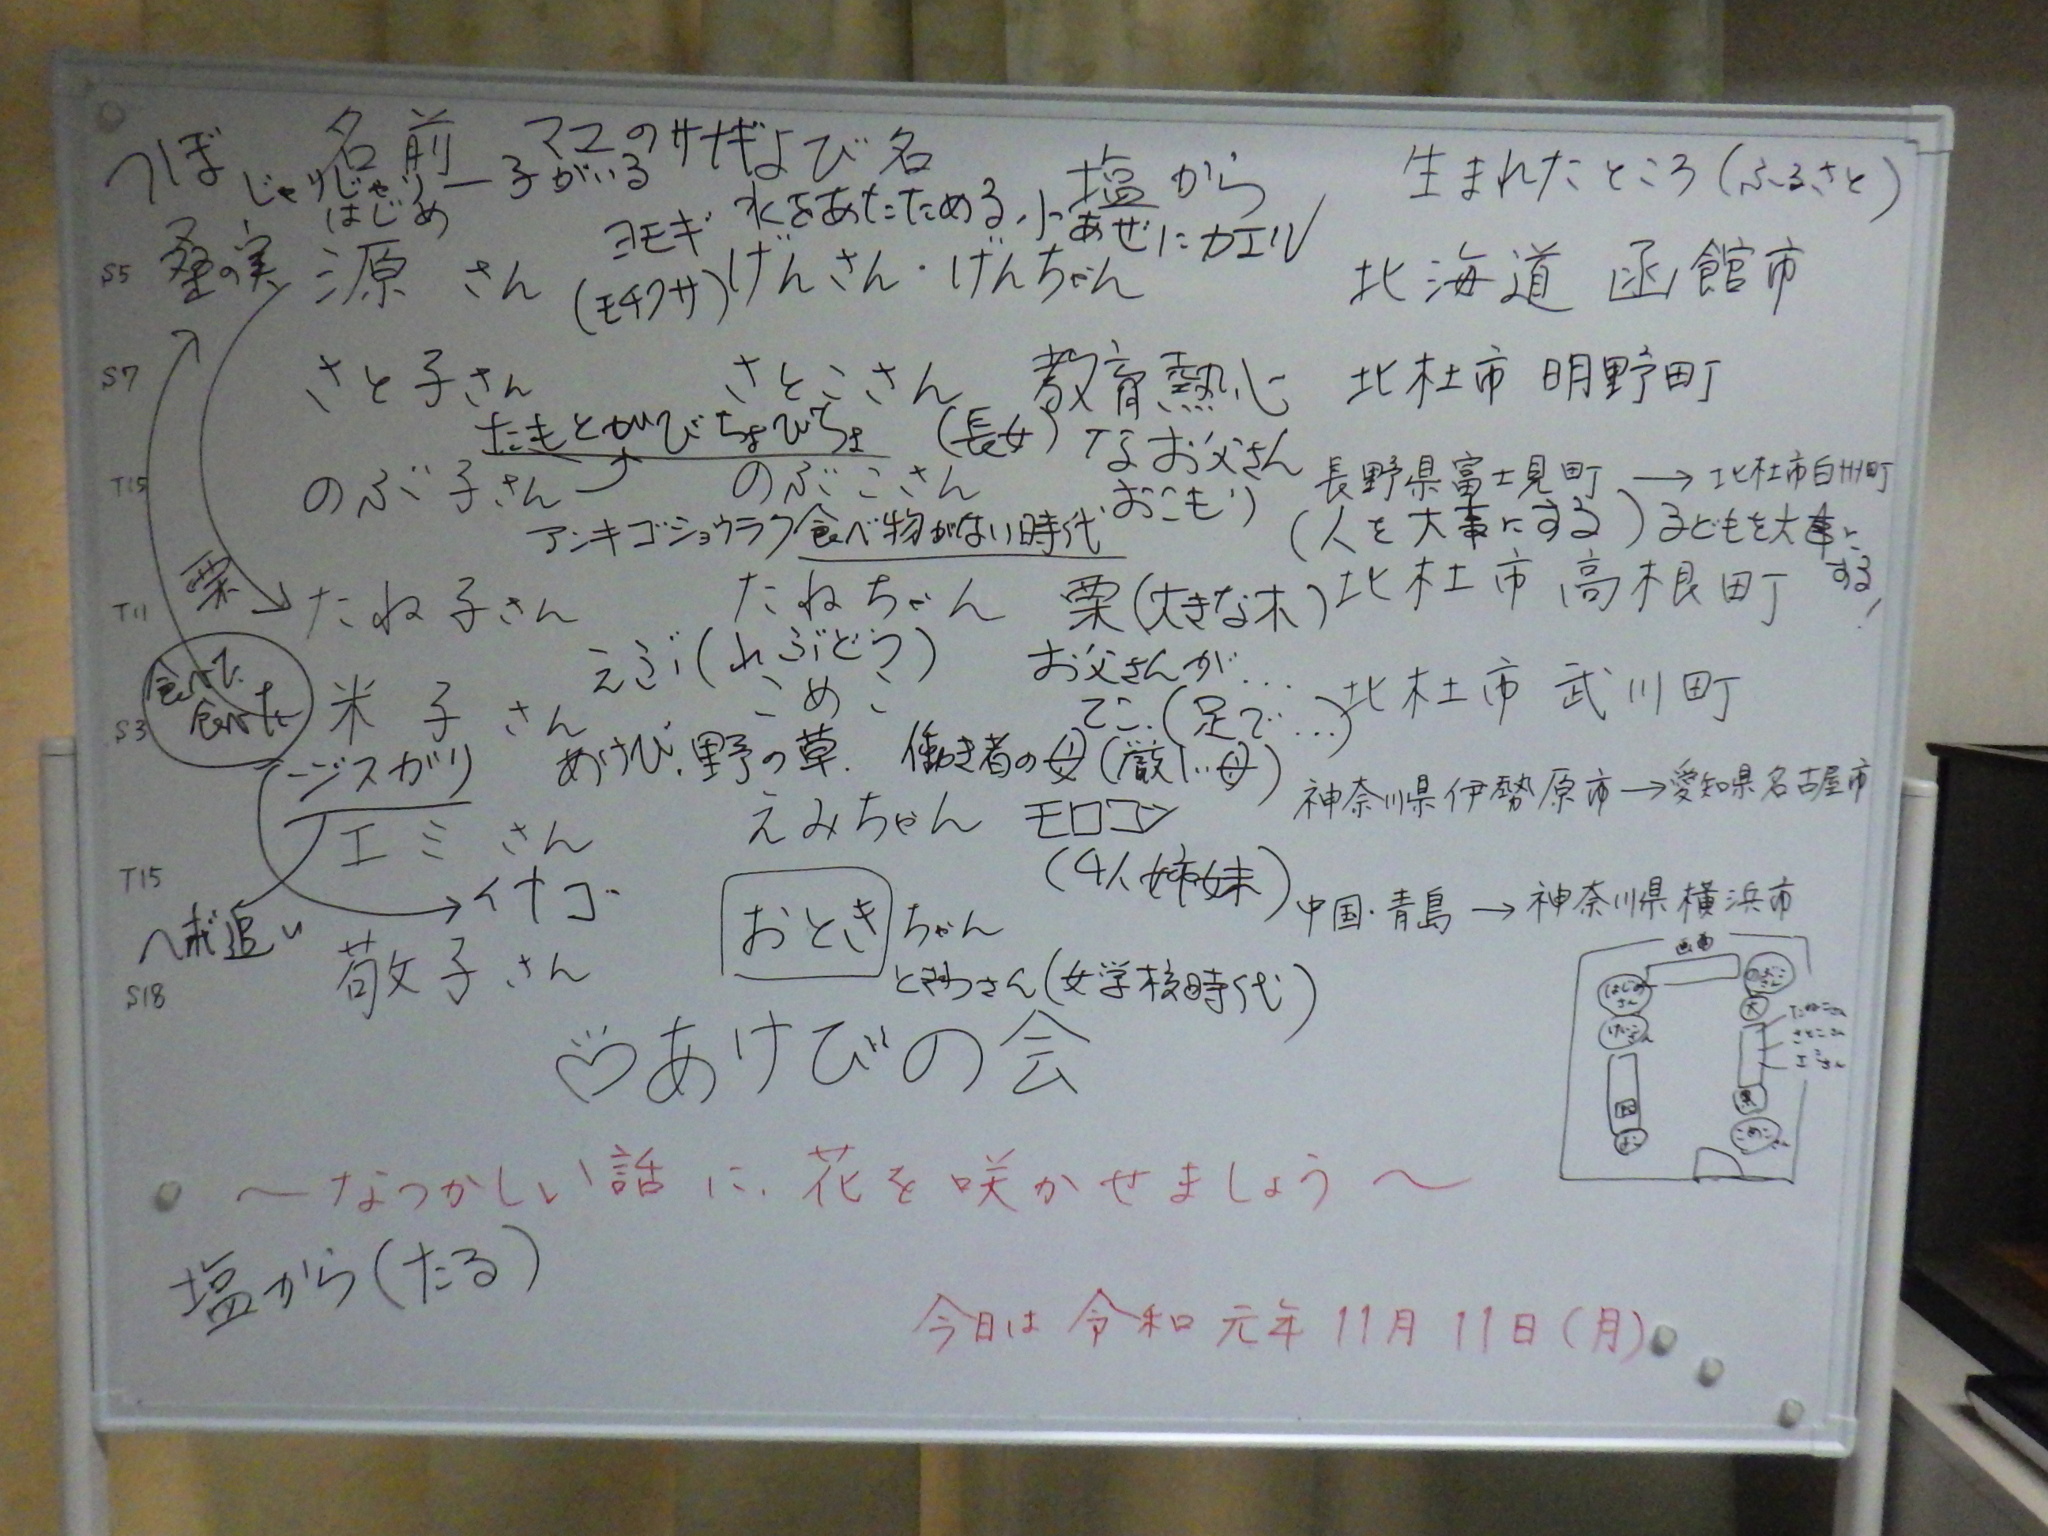 つぼ 名前 マユのサナギ よび名 塩から 生まれたところ(ふるさと)
じゃりじゃり 子がいる
はじめ ヨモギ 水をあたためる あぜにカエル
S5 桑の実 源 さん (モチクサ) げんさん・げんちゃん 北海道 函館市
S7 さと子さん さとこさん 教育熱心 北杜市 明野町
(長女) なお父さん
T15 のぶ子さん のぶこさん おこもり 長野県富士見町 → 北杜市白州町
アンキゴショウラク 食べ物がない時代 (人を大事にする) 子どもを大事にする!
T11 栗 たね子さん たねちゃん 栗(大きな木) 北杜市 高根町
えぶ( ぶどう) お父さんが…
S3 食べて、食べた 米子さん こめこ てこ(足で…) 北杜市 武川町
ジスガリ あけび、野の草. 働き者の母(厳しい母)
神奈川県伊勢原市→愛知県名古屋市
T15 エミさん えみちゃん モロコシ
(4人姉妹)
イナゴ 中国・青島 → 神奈川県横浜市
へボ追い
S18 敬子さん おときちゃん
ときわさん(女学校時代)
♡あけびの会
～なつかしい話に、花を咲かせましょう～
塩から(たる)
今日は 令和元年 11月11日(月)
画面
はじめさん のぶこさん
けいこさん 大
たねこさん
さとこさん
エミさん
こめこさん